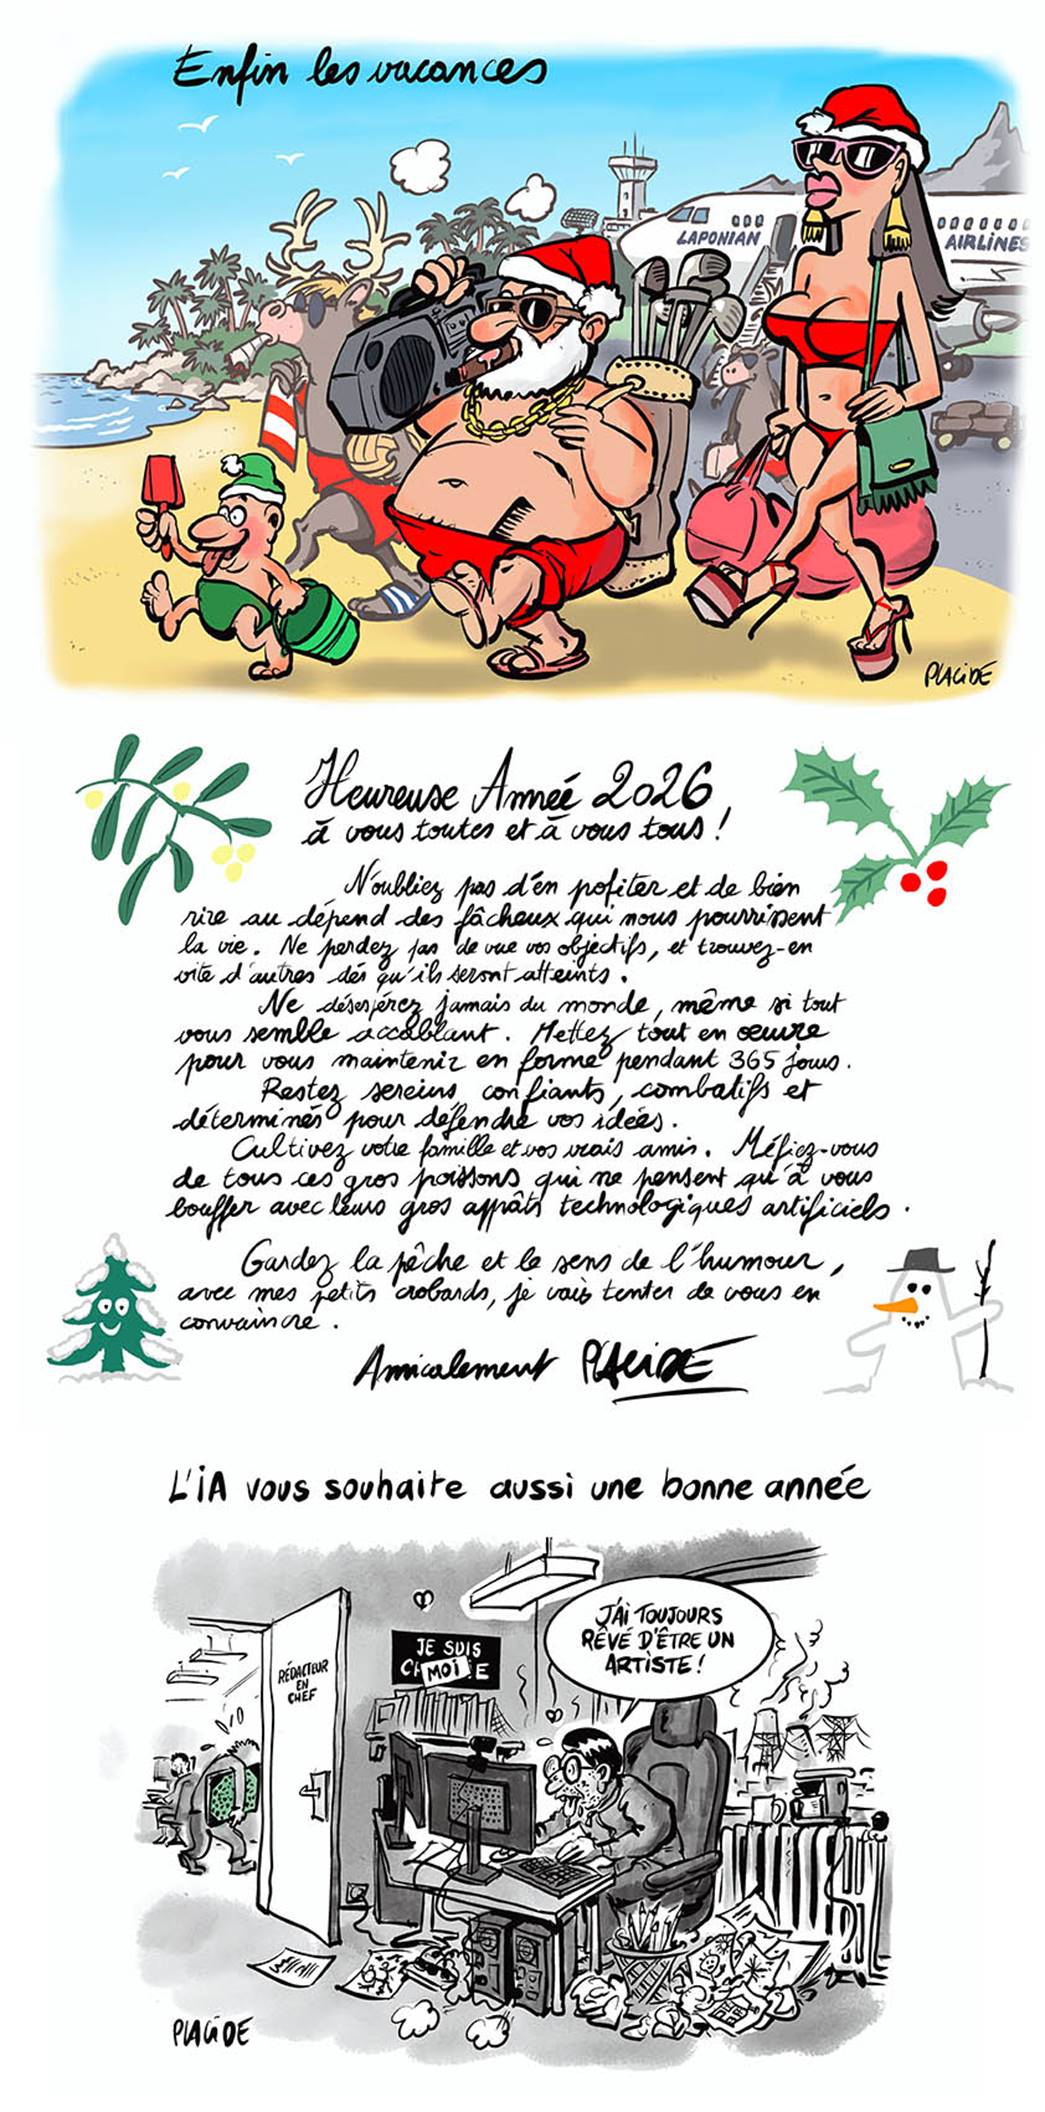 Enfin les vacances
LAPONIAN
AIRLINES
PLACIDE
Heureuse Année 2026
à vous toutes et à vous tous !
N'oubliez pas d'en pofiter et de bien
rire au dépend des fâcheux qui nous pourrissent
la vie. Ne perdez pas de vue vos objectifs, et trouvez-en
vite d'autres dés qu'ils seront atteints.
Ne désespérez jamais du monde, même si tout
vous semble accablant. Mettez tout en œuvre
pour vous maintenir en forme pendant 365 jours.
Restez sereins, confiants, combatifs et
déterminés pour défendre vos idées.
Cultivez votre famille et vos vrais amis. Méfiez-vous
de tous ces gros poissons qui ne pensent qu'à vous
bouffer avec leurs gros appâts technologiques artificiels.
Gardez la pêche et le sens de l'humour,
avec mes petits crobards, je vais tenter de vous en
convaincre.
Amicalement PLACIDE
L'IA vous souhaite aussi une bonne année
J'AI TOUJOURS
RÊVÉ D'ÊTRE UN
ARTISTE !
JE SUIS
CH MOI E
RÉDACTEUR
EN
CHEF
PLACIDE